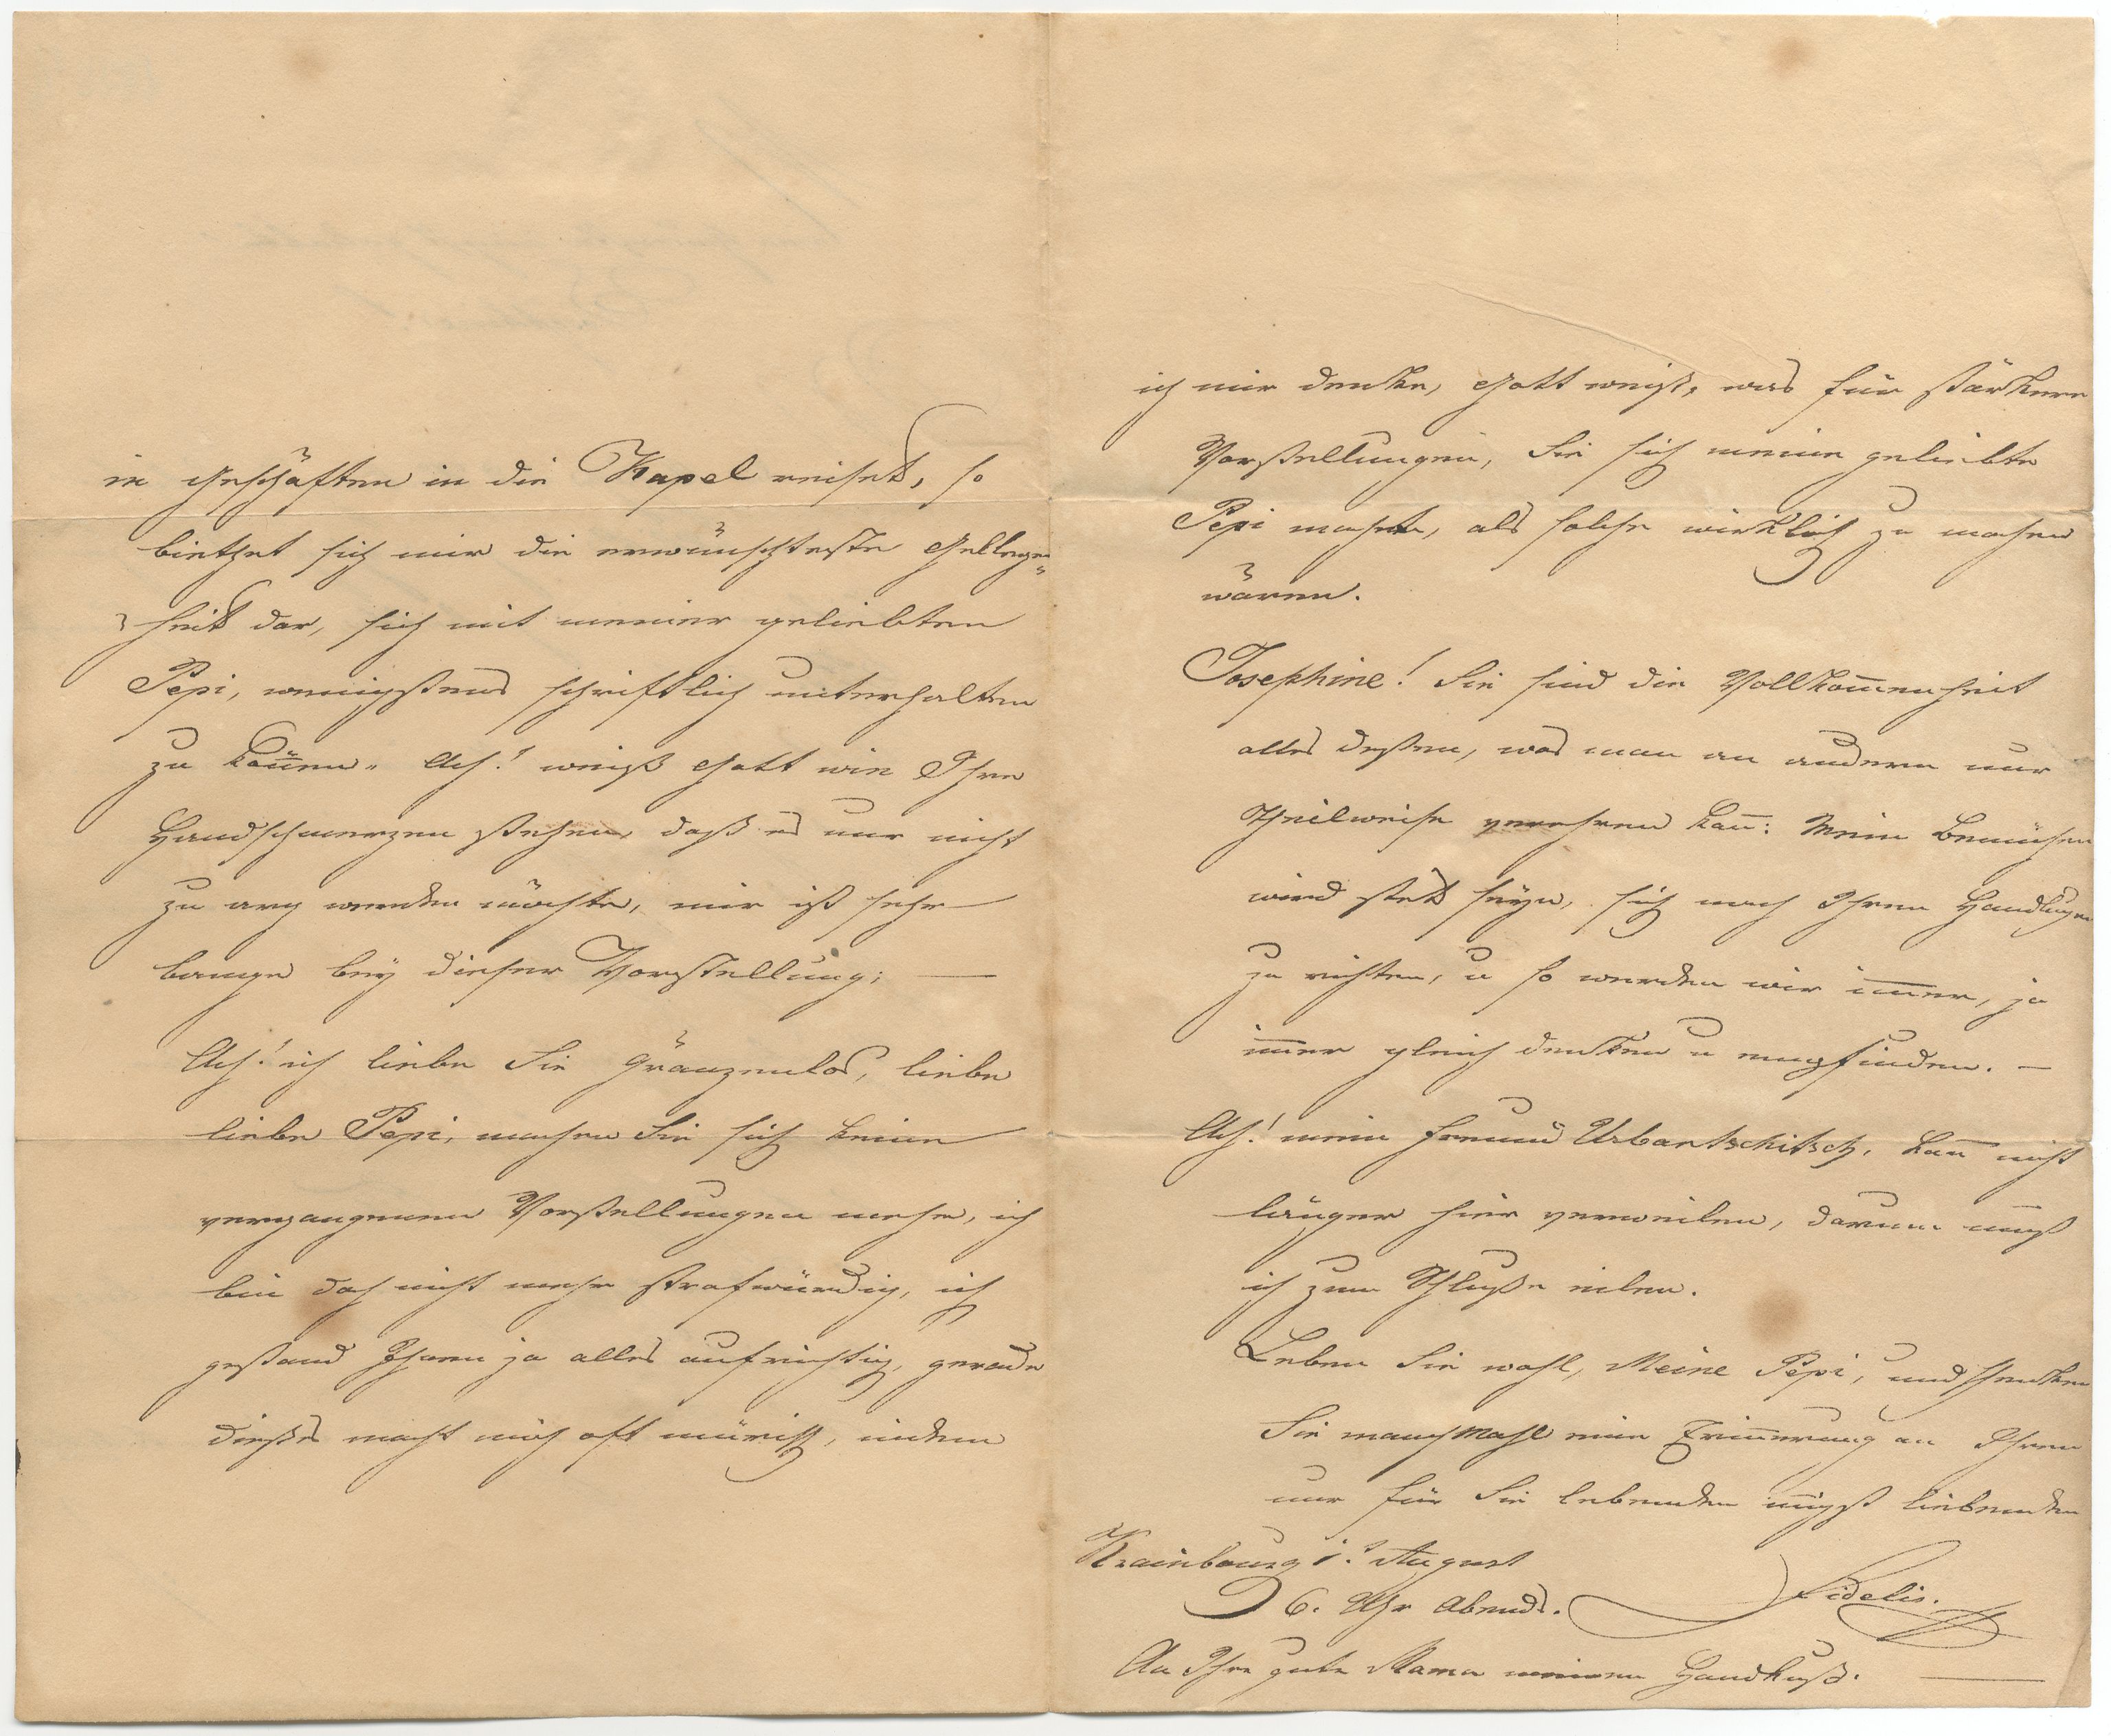 in Geschäften in die Kapel reiset, so
biethet sich mir die erwünschteste Gellegen=
=heit dar, sich mit meiner geliebten
Pepi, wenigstens schriftlich unterhalten
zu können. Ach! weiß Gott wie Ihre
Handschmerzen stehen, daß es nur nicht
zu arg werden möchte, mir ist sehr
bange bey dieser Vorstellung; —
Ach! ich liebe Sie gränzenlos, liebe
liebe Pepi, machen Sie sich keine
vergangenen Vorstellungen mehr, ich
bin doch nicht mehr strafwürdig, ich
gestand Ihnen ja alles aufrichtig, gerade
dießes macht mich oft mürrisch, indem
ich mir denke, Gott weiß, was für stärkere
Vorstellungen, Sie sich meine geliebte
Pepi machen, als solche wirklich zu machen
wären.
Josephine! Sie sind die Vollkom̄enheit
alles deßen, was man an andern nur
theilweise verehren kan̄: Mein Bemühen
wird stets seyn, sich nach Ihren Handlungen
zu richten, u so werden wir im̄er, ja
im̄er gleich denken u empfinden. —
Ach! mein Freund Urbantschitsch, kan̄ nicht
länger hier verweilen, darum muß
ich zum Schluße eilen.
Leben Sie wohl, Meine Pepi, und schenken
Sie manchmahl eine Erin̄erung an Ihren
nur für Sie lebenden in̄igst liebenden
Krainbourg 1t August
6. Uhr Abends. Fidelis.
An Ihre gute Mama meinen Handkuß. —